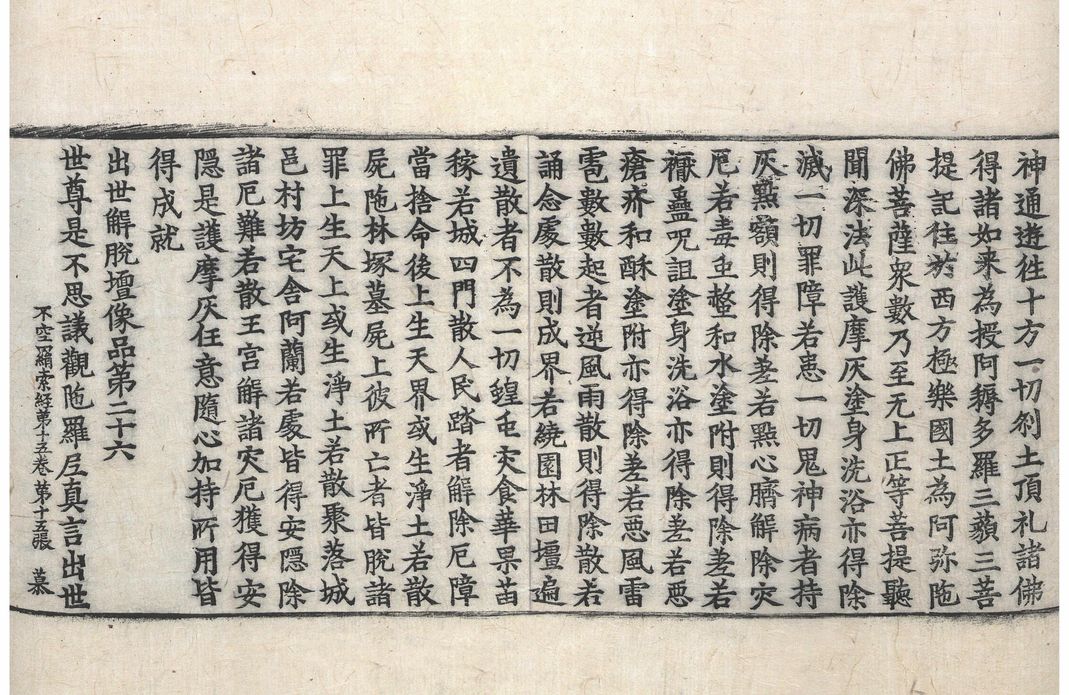 神通遊往十方一切刹土頂礼諸佛
得諸如来為授阿耨多羅三藐三菩
提記往於西方極樂國土為阿弥陁
佛菩薩衆數乃至无上正等菩提聽
聞深法此護摩灰塗身洗浴亦得除
滅一切罪障若患一切鬼神病者持
灰㸃額則得除差若㸃心臍解除灾
厄若毒䖝螫和水塗附則得除差若
襒蠱咒詛塗身洗浴亦得除差若惡
瘡疥和酥塗附亦得除差若惡風雷
雹數數起者逆風雨散則得除散若
誦念處散則成界若繞園林田壇遍
遺散者不為一切蝗䖝灾食華果苗
稼若城四門散人民踏者解除厄障
當捨命後上生天界或生淨土若散
屍陁林塚墓屍上彼所亡者皆脫諸
罪上生天上或生淨土若散聚落城
邑村坊宅舍阿蘭若處皆得安隱除
諸厄難若散王宮解諸灾厄獲得安
隱是護摩灰任意隨心加持所用皆
得成就
出世解脫壇像品第二十六
世尊是不思議觀陁羅尼真言出世
不空羂索経第十五卷 第十五張 慕